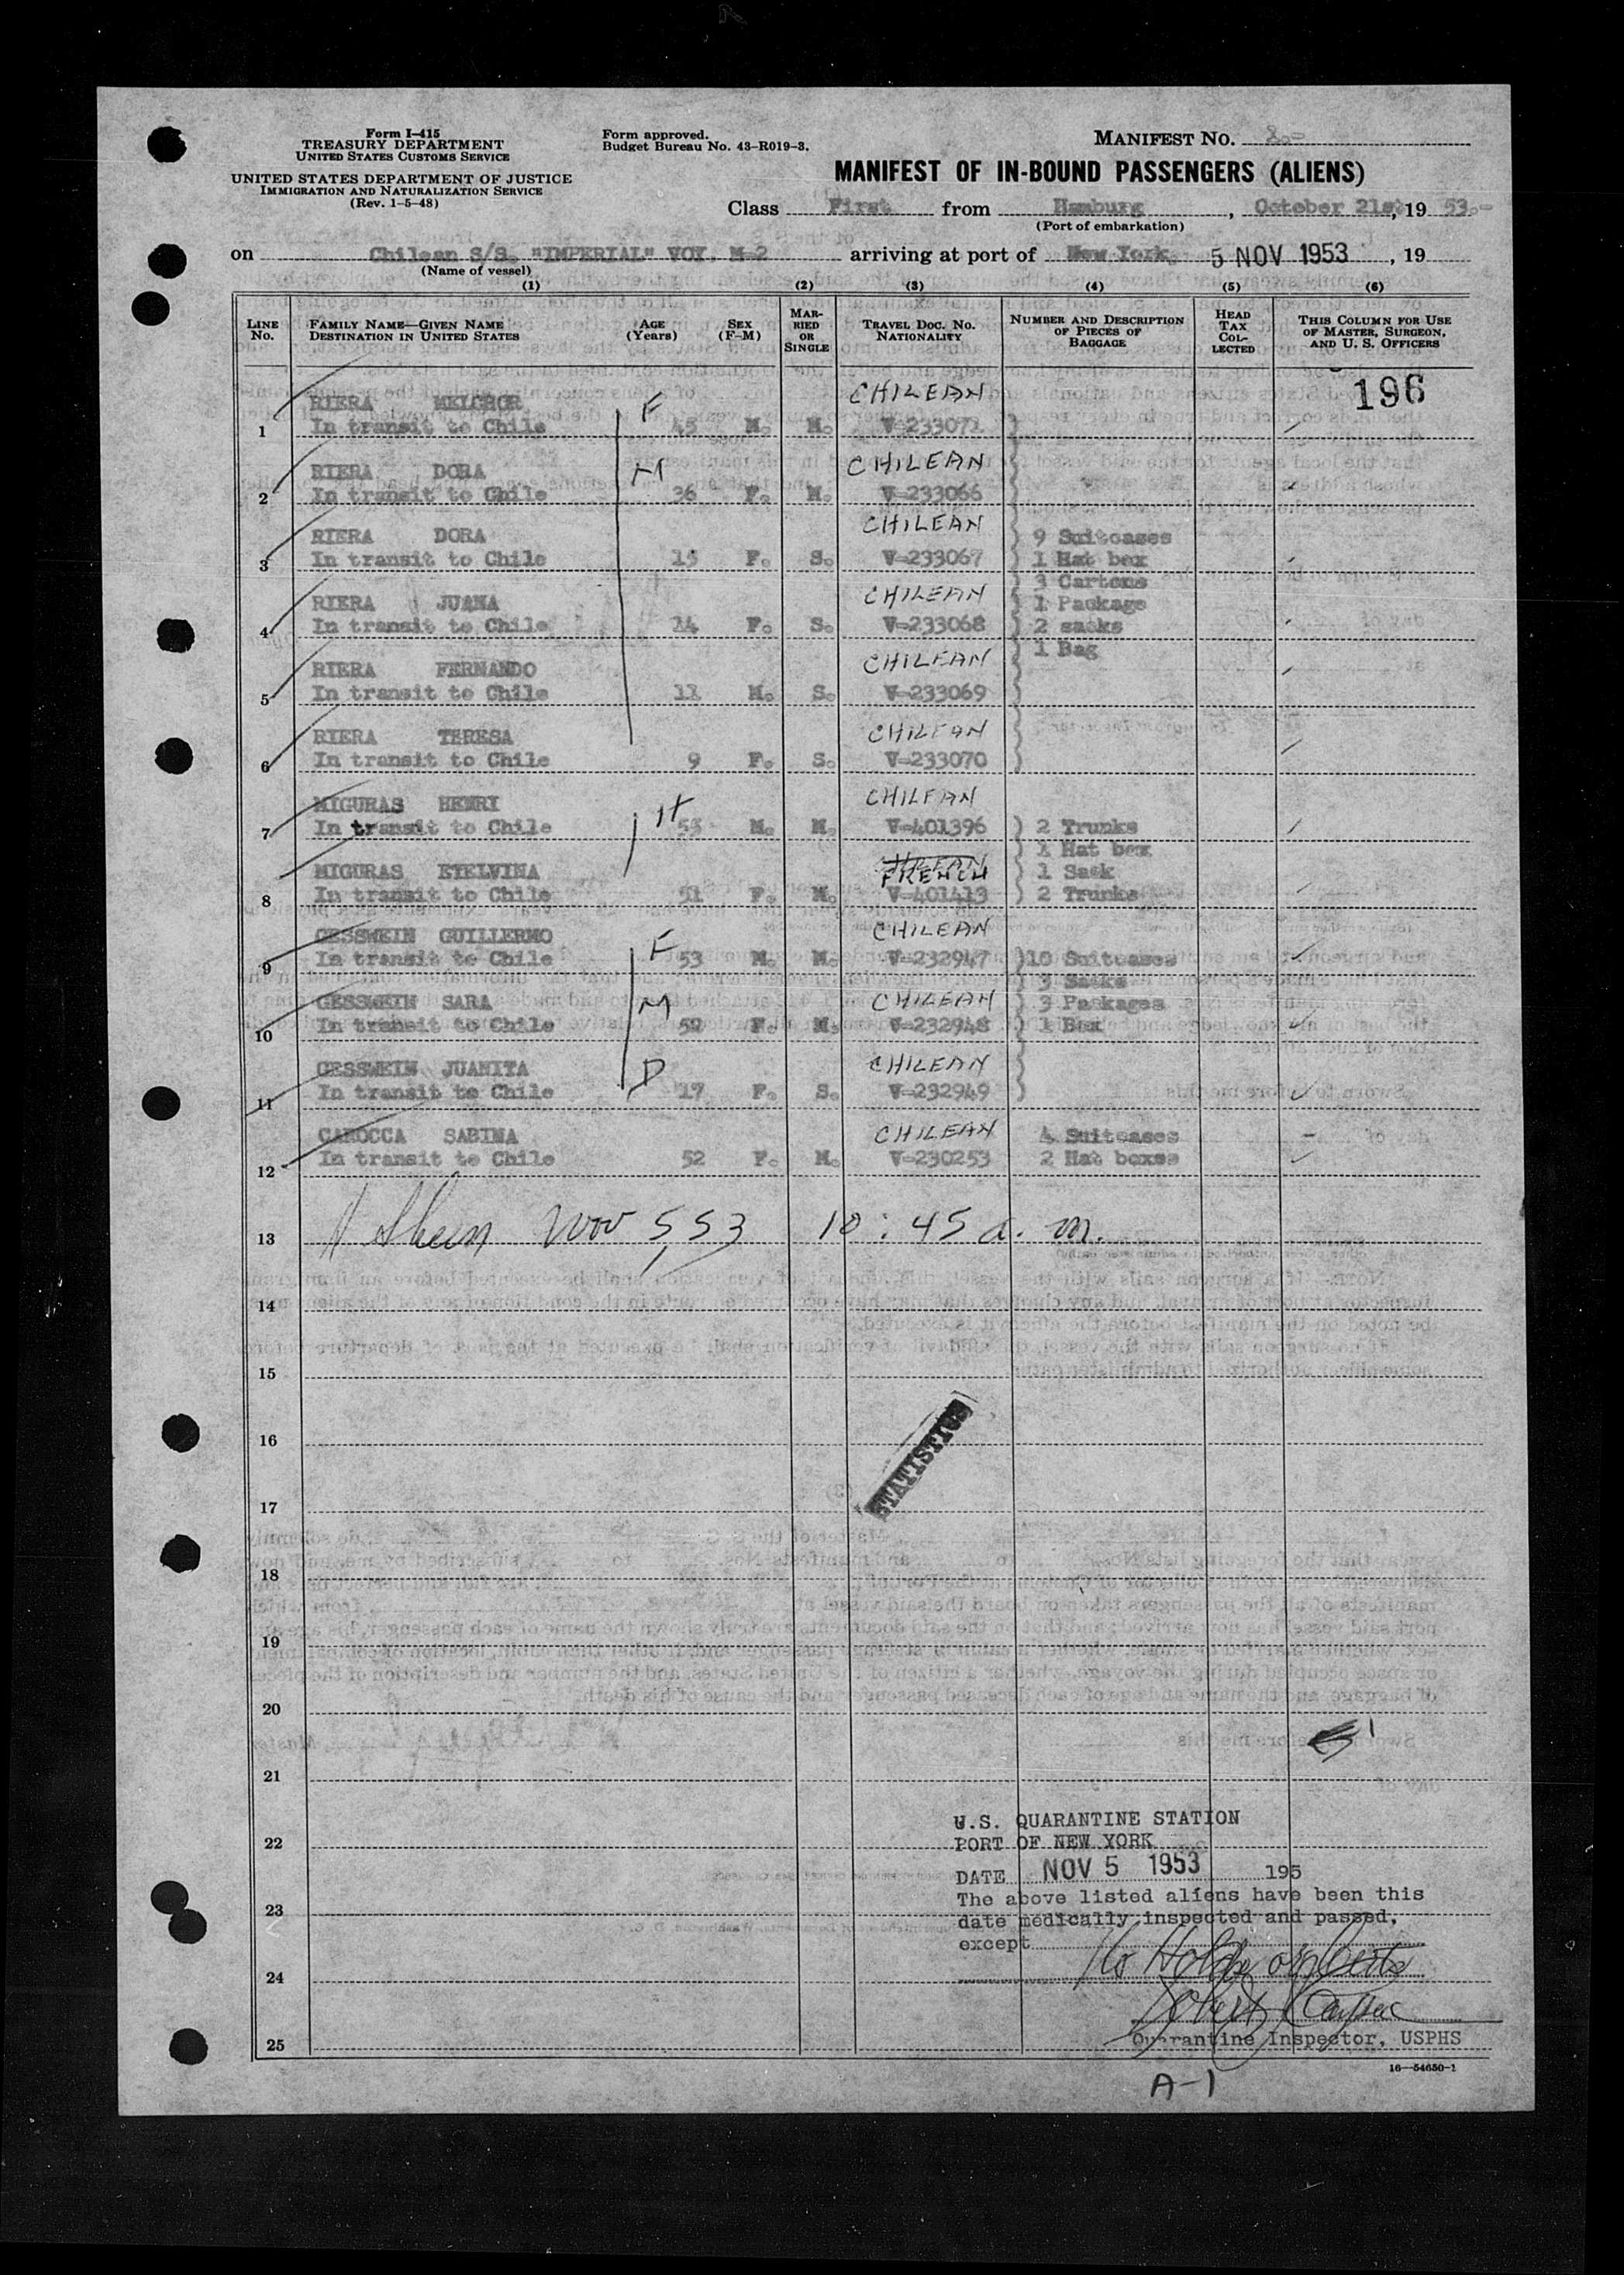 Form I-415
TREASURY DEPARTMENT
UNITED STATES CUSTOMS SERVICE
UNITED STATES DEPARTMENT OF JUSTICE
IMMIGRATION AND NATURALIZATION SERVICE
(Rev. 1-5-48)
Form approved.
Budget Bureau No. 43-R019-3.
MANIFEST No. 8.-
MANIFEST OF IN-BOUND PASSENGERS (ALIENS)
Class First from Hamburg, October 21st, 19 53.-
(Port of embarkation)
on Chilean S/S. "IMPERIAL" VOY. M-2 arriving at port of New York. 5 NOV 1953, 19
(Name of vessel)
(1) (2) (3) (4) (5) (6)
LINE No. FAMILY NAME—GIVEN NAME DESTINATION IN UNITED STATES AGE (Years) SEX (F-M) MARRIED OR SINGLE TRAVEL DOC. No. NATIONALITY NUMBER AND DESCRIPTION OF PIECES OF BAGGAGE HEAD TAX COLLECTED THIS COLUMN FOR USE OF MASTER, SURGEON, AND U. S. OFFICERS
196
RIERA MELCHOR F CHILEAN
1 In transit to Chile 45 M. M. V-233071 )
RIERA DORA M CHILEAN )
2 In transit to Chile 36 F. M. V-233066 )
RIERA DORA CHILEAN ) 9 Suitcases
3 In transit to Chile 15 F. S. V-233067 ) 1 Hat box
) 3 Cartons
RIERA JUANA CHILEAN ) 1 Package
4 In transit to Chile 14 F. S. V-233068 ) 2 sacks
) 1 Bag
RIERA FERNANDO CHILEAN )
5 In transit to Chile M. S. V-233069 )
RIERA TERESA CHILEAN )
6 In transit to Chile 9 F. S. V-233070 )
MIGURAS HENRI H CHILEAN
7 In transit to Chile 55 M. M. V-401396 ) 2 Trunks
) 1 Hat box
MIGURAS ETELVINA CHILEAN FRENCH ) 1 Sack
8 In transit to Chile 51 F. M. V-401413 ) 2 Trunks
GESSWEIN GUILLERMO F CHILEAN
9 In transit to Chile 53 M. M. V-232947 )10 Suitcases
) 3 Sacks
GESSWEIN SARA M CHILEAN ) 3 Packages
10 In transit to Chile F. M. V-232948 ) 1 Box
GESSWEIN JUANITA D CHILEAN )
11 In transit to Chile 17 F. S. V-232949 )
CAROCCA SABINA CHILEAN 4 Suitcases
12 In transit to Chile 52 F. M. V-230253 2 Hat boxes
13 Nov 5, 53 10:45 a. m.
14
15
16
STATISTICS
17
18
19
20
21
U.S. QUARANTINE STATION
22 PORT OF NEW YORK
DATE NOV 5 1953 195
The above listed aliens have been this
23 date medically inspected and passed,
except No Holds or Certs
24
Robert
Quarantine Inspector, USPHS
25
16—54650-1
A-1